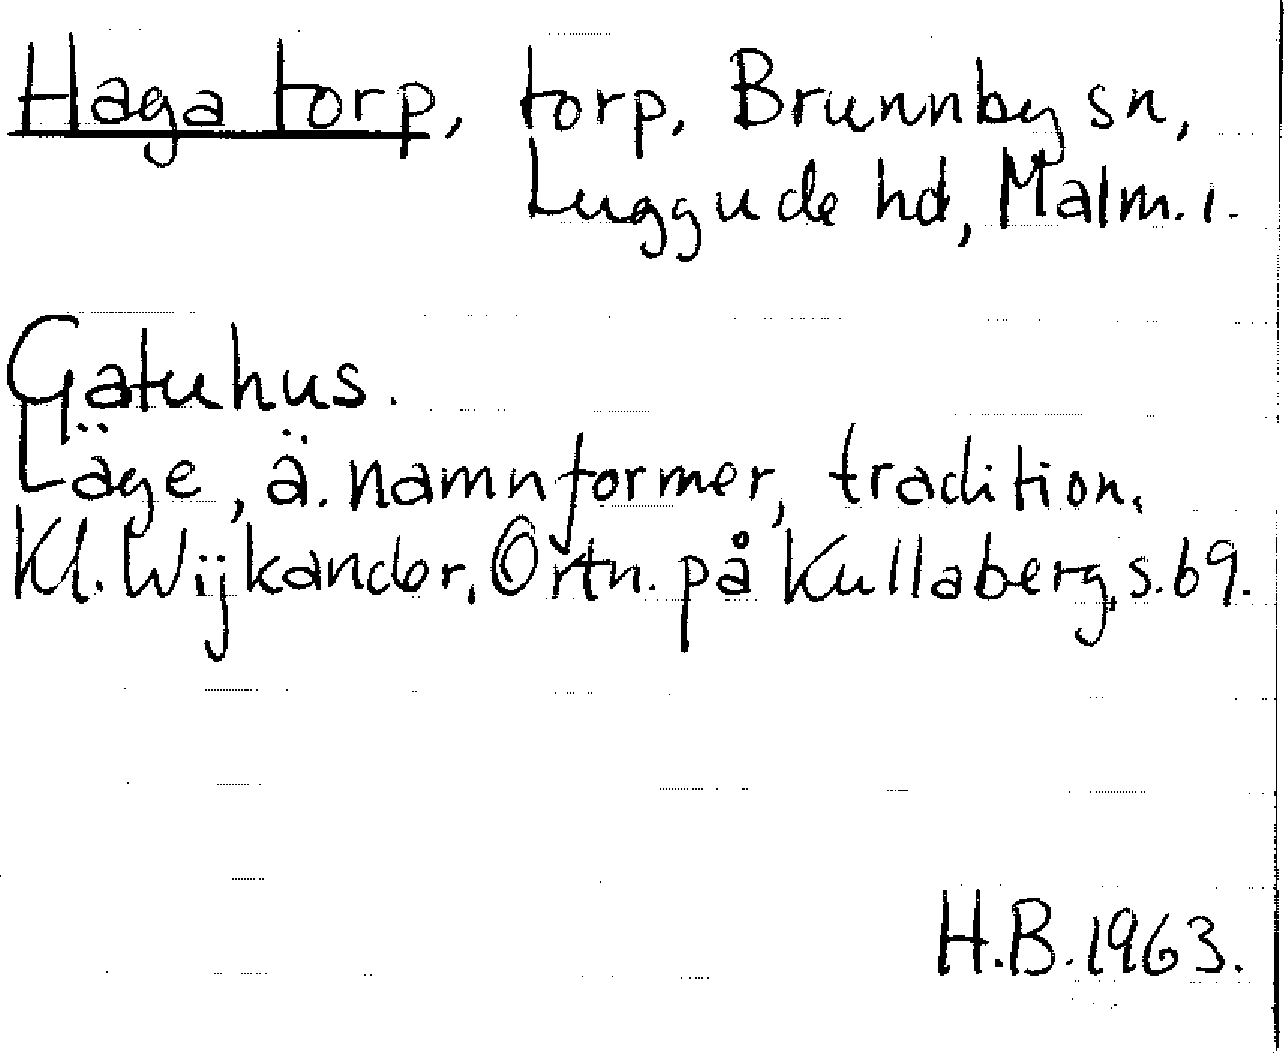 Haga torp, torp, Brunnby sn,
Luggude hd, Malm. l.
Gatuhus.
Läge, ä. namnformer, tradition.
Kl. Wijkander, Ortn. på Kullaberg, s. 69.
H.B. 1963.